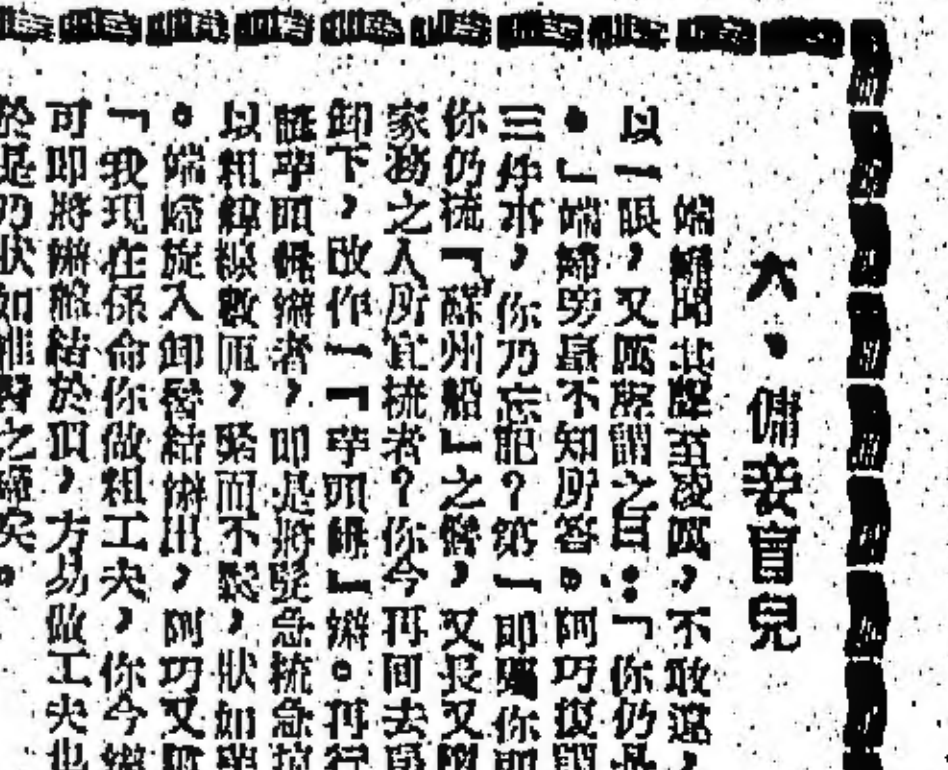 六·傭妾盲兒
端婦聞其聲至凌厲,不敢違,
以一眼,又厲聲謂之曰:「你仍是
。」端婦旁皇不知所答。阿巧復謂
三件事,你乃忘記?第一即囑你即
你仍梳『蘇州船』之髻,又長又闊
家務之人所宜梳者?你今再回去房
卸下,改作一『芋頭』辮。再行
芋頭辮者,即是將髮急梳急
以粗繩綑數匝,緊而不鬆,狀如
。端婦旋入卸髻結辮出,阿巧又
「我現在係命你做粗工夫,你今辮
可即將辮盤結於頂,方易做工夫也
於是乃狀如之矣。